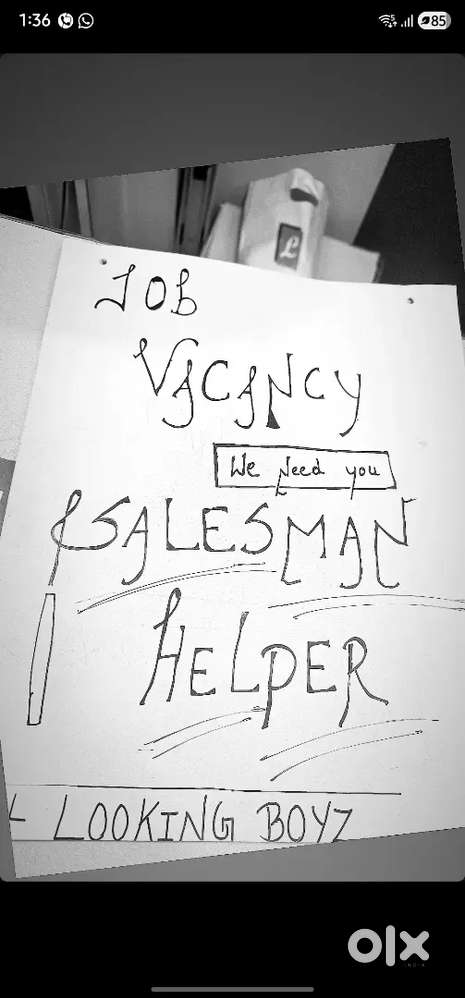 1:36
85
L
JOB
VACANCY
We Need you
SALESMAN
HELPER
LOOKING BOYZ
olx
INDIA